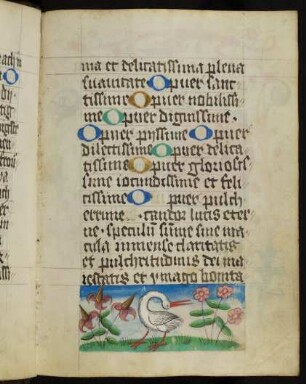 ma et delicatissima plena
suavitate O puer sanc
tissime O puer nobilissi
me O puer dignissime ·
O puer pyssime O puer
dilectissime O puer delica
tissime O puer gloriosis
sime iocundissime et feli
cissime O puer pulch
errime · candor lucis eter
ne · speculum sine ma
cula inmense claritatis
et pulchritudinis dei ma
iestatis et ymago bonita